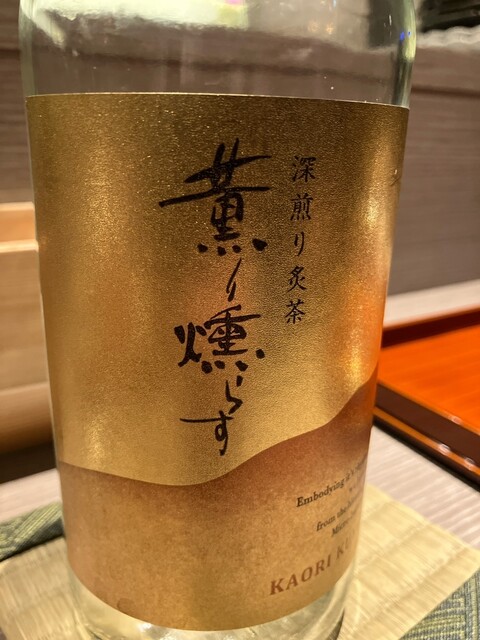 深煎り炙茶
薫り燻らす
Embodying a
from the
KAORI